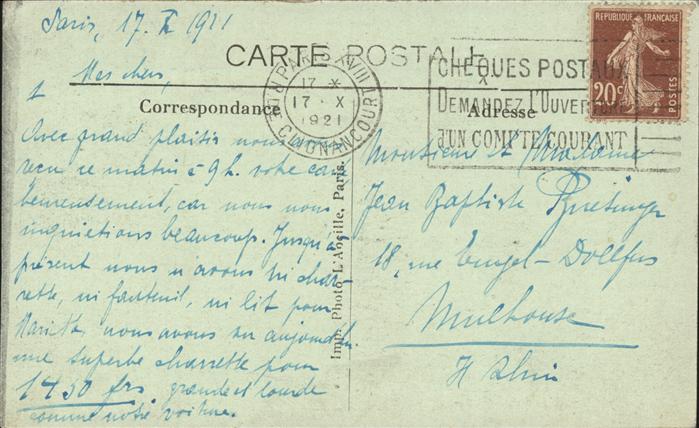 Paris, 17. X 1921
CARTE POSTALE
Mes chers,
Correspondance
Avec grand plaisir nous avons
reçu ce matin à 9 h. votre
heureusement, car nous nous
inquiétions beaucoup. Jusqu'à
présent nous n'avons ni char-
rette, ni fauteuil, ni lit pour
nous avons vu aujourd'h.
une superbe charrette pour
1450 frs. grande et lourde
comme notre voiture.
Imp. Photo L'Abeille, Paris.
PARIS XVIII
17 *
17 · X
1921
R. DE CLIGNANCOURT
CHEQUES POSTAUX
DEMANDEZ L'OUVER
d'UN COMPTE COURANT
REPUBLIQUE FRANÇAISE
20c
POSTES
Adresse
Monsieur et Madame
Jean Baptiste
18, rue Engel-Dollfus
Mulhouse
H Rhin